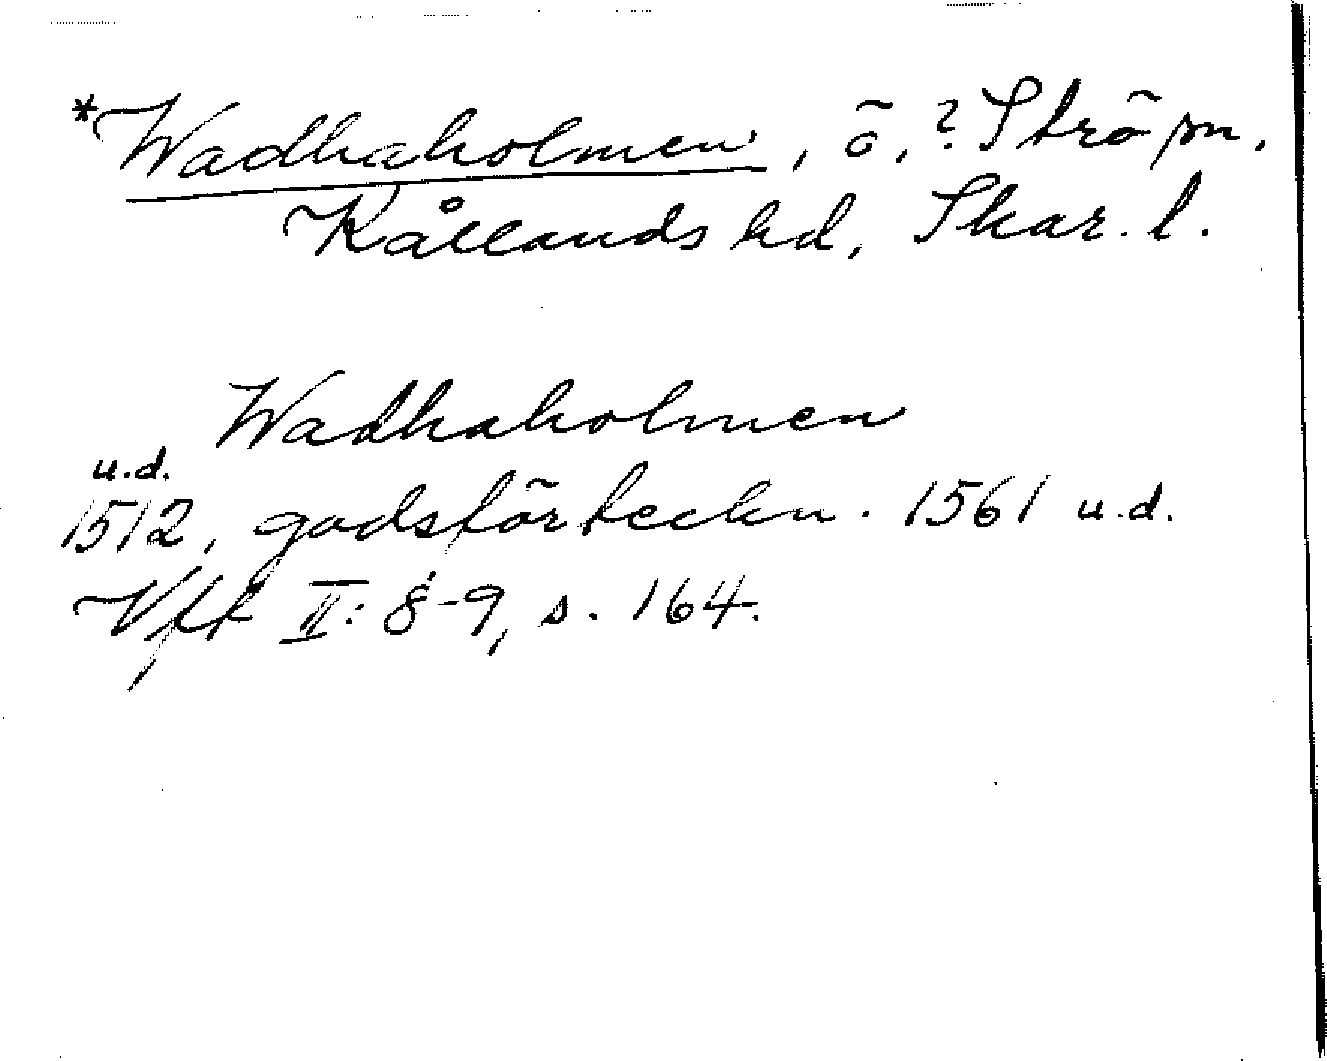 *Wadhaholmen, ö, ? Strö sn,
Kållands hd, Skar. l.
Wadhaholmen
u.d.
1512, godsförteckn. 1561 u.d.
Vft II: 8-9, s. 164.